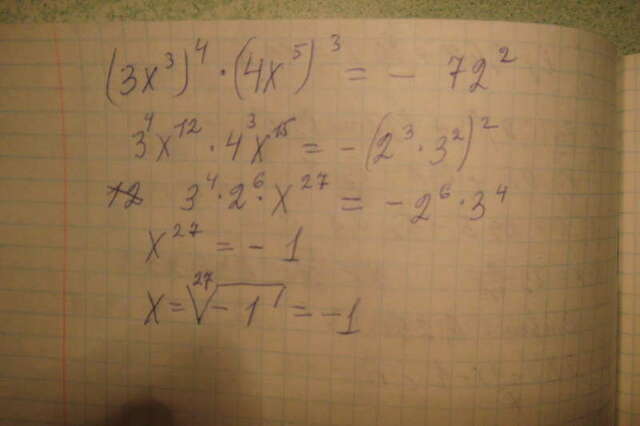 (3x³)⁴ · (4x⁵)³ = - 72²
3⁴x¹² · 4³x¹⁵ = -(2³ · 3²)²
3⁴ · 2⁶ · x²⁷ = - 2⁶ · 3⁴
x²⁷ = - 1
x = ²⁷√-1 = -1